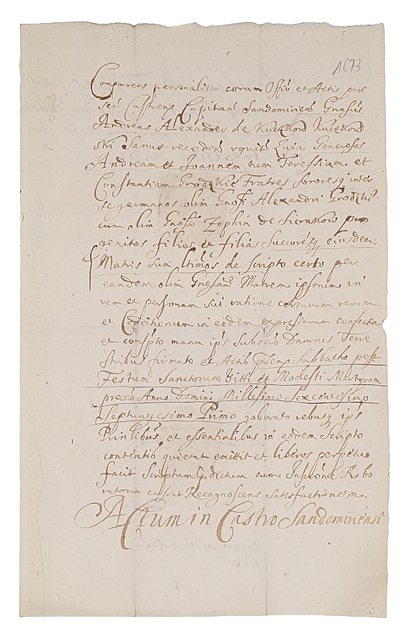 1673
Comparens personaliter coram Offo et Actis prae
sen Castrens Capitan Sandomirien Gnosus
Andreas Alexander de
Sanus
Andream et Joannem tum Teressiam et
Constantiam Grodzkie Fratres Sorores inter
se germanos olim Gnosi Alexandri Grodzki
cum olim Gnosa Zophia de Sierakow pro
genitos filios et filias Succores eiusdem
Matris suae de scripto certo per
eandem olim Gnosam Matrem ipsorum in
rem et personam sui ratione certarum rerum
et Conditionum in eodem expressarum confecto
et scripto manu ips subscrip Damus Terre
stribus firmato et Actis Sabbatho post
Festum Sanctorum Viti et Modesti Martyrum
prox Anno Domini Millesimo Sexcentesimo
Septuagesimo Primo roborato rebus ips
Prinlibus et essentialibus in eodem Scripto
contentis quietat emittit et liberos perpetuo
facit Scriptum dictum cum Robo
ratoria cassat Recognoscens satisfactionem.
Actum in Castro Sandomiriensi